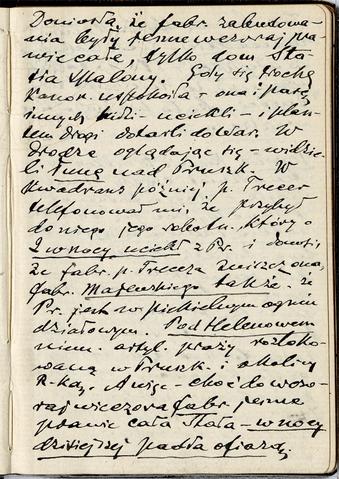 Doniosła, że fabr. zabudowa-
nia były jeszcze wczoraj pra-
wie całe, tylko dom Sta-
sia spalony. Gdy się trochę
kanon. uspokoiła - ona i parę
innych ludzi - uciekli - i
drogi dotarli do War. W
drodze oglądając się - widzie-
li łunę nad Pruszk. W
kwadrans później p. Trecer
telefonował mi, że przybył
do niego jego robotn., który o
2 w nocy uciekł z Pr. i donosi,
że fabr. p. Trecera zniszczona,
fabr. Majewskiego także. że
Pr. jest w piekielnym ogniu
działowym. Pod Helenowem
niem. artyl. praży rozloko-
waną w Pruszk. i okolicy
R-kę. A więc - choć do wczo-
raj wieczora fabr. jeszcze
prawie cała stała - w nocy
dzisiejszej padła ofiarą.